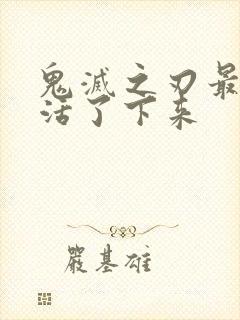 鬼滅之刃最
活了下来
嚴基雄